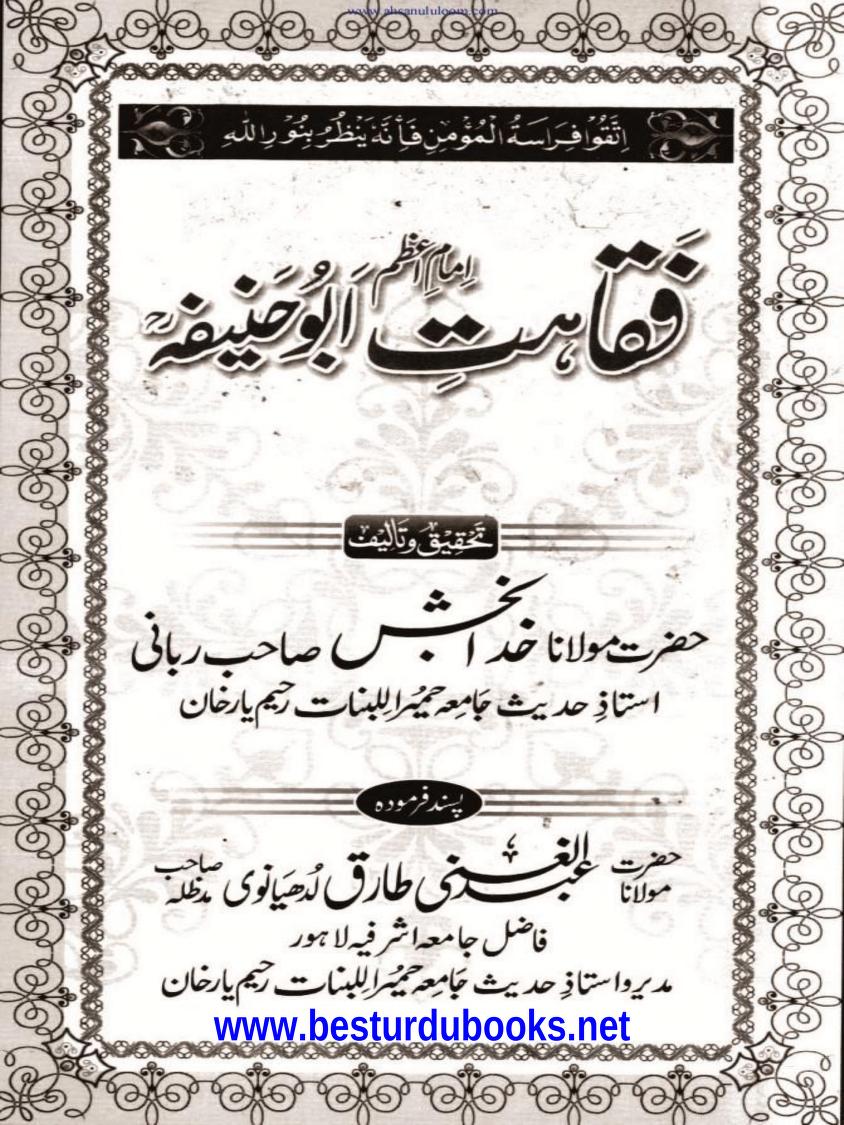 www.ahsanululoom.com
اِتَّقُوْا فِرَاسَةُ الْمُؤْمِنِ فَاِنَّهٗ يَنْظُرُ بِنُوْرِ اللهِ
فَقاہتِ امامِ اعظم اَبُو حَنیفہؒ
تَحقِیق و تَالیِف
حضرت مولانا خدا بخش صاحب ربانی
استاذِ حدیث جَامِعہ حمیرا للبنات رحیم یارخان
پسند فرمودہ
حضرت مولانا عبد الغنی طارق لُدھیانوی صاحب مدظلہ
فاضل جامعہ اشرفیہ لاہور
مدیر و استاذِ حدیث جَامِعہ حمیرا للبنات رحیم یارخان
www.besturdubooks.net